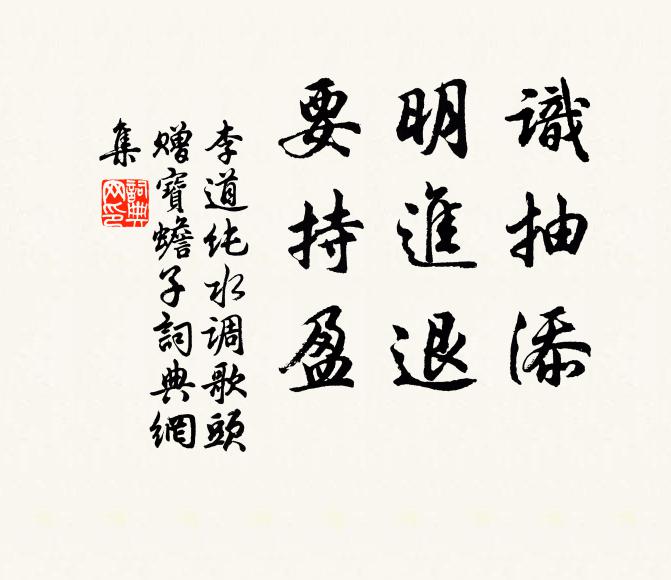 識抽添
明進退
要持盈
李道纯水调歌頭
赠寶蟾子詞典網
集
詞典
网印